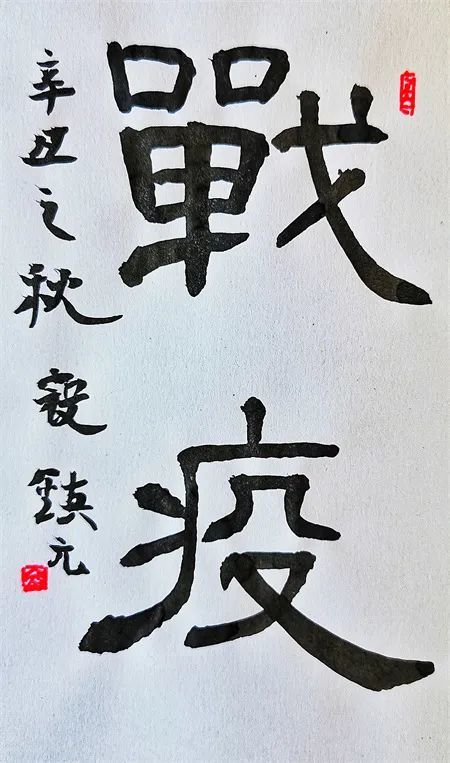 戰疫
辛丑之秋 鎮元